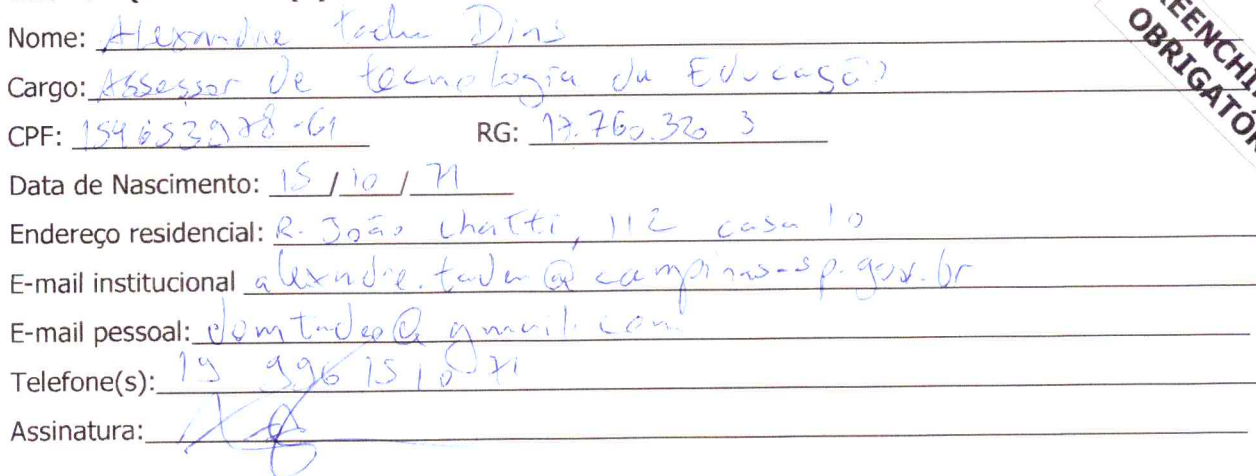 PREENCHIMENTO
OBRIGATÓRIO
Nome: Alexandre Tadeu Dias
Cargo: Assessor de tecnologia da Educação
CPF: RG: 17.760.320 3
Data de Nascimento: 15 / 10 / 71
Endereço residencial: R. João 112 casa 10
E-mail institucional alexandre.tadeu@campinas.sp.gov.br
E-mail pessoal: domtadeo@gmail.com
Telefone(s): 19 996 15 10 71
Assinatura: